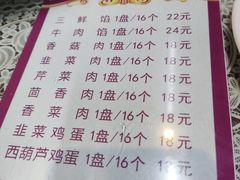 三鲜馅 1盘/16个 22元
牛肉馅 1盘/16个 24元
香菇肉 1盘/16个 18元
韭菜肉 1盘/16个 18元
芹菜肉 1盘/16个 18元
茴香肉 1盘/16个 18元
香菜肉 1盘/16个 18元
韭菜鸡蛋 1盘/16个 18元
西葫芦鸡蛋 1盘/16个 18元